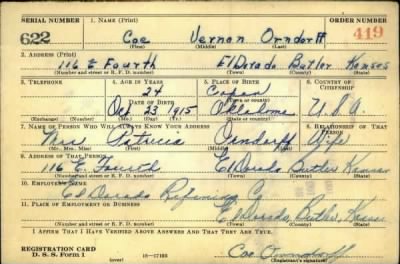 SERIAL NUMBER 1. NAME (Print) ORDER NUMBER
622 Coe Vernon Orndorff 419
(First) (Middle) (Last)
2. ADDRESS (Print)
116 E Fourth ElDorado Butler Kansas
(Number and street or R. F. D. number) (Town) (County) (State)
3. TELEPHONE 4. AGE IN YEARS 5. PLACE OF BIRTH 6. COUNTRY OF CITIZENSHIP
24 Copan
DATE OF BIRTH (Town or county)
Oct 23 1915 Oklahoma U.S.A
(Exchange) (Number) (Mo.) (Day) (Yr.) (State or country)
7. NAME OF PERSON WHO WILL ALWAYS KNOW YOUR ADDRESS 8. RELATIONSHIP OF THAT PERSON
Patricia Orndorff Wife
(Mr., Mrs., Miss) (First) (Middle) (Last)
9. ADDRESS OF THAT PERSON
116 E. Fourth ElDorado Butler Kansas
(Number and street or R. F. D. number) (Town) (County) (State)
10. EMPLOYER'S NAME
El Dorado Refining Co
11. PLACE OF EMPLOYMENT OR BUSINESS
ElDorado, Butler, Kansas
(Number and street or R. F. D. number) (Town) (County) (State)
I AFFIRM THAT I HAVE VERIFIED ABOVE ANSWERS AND THAT THEY ARE TRUE.
REGISTRATION CARD
D. S. S. Form 1 (over) 16—17105 Coe Orndorff
(Registrant's signature)